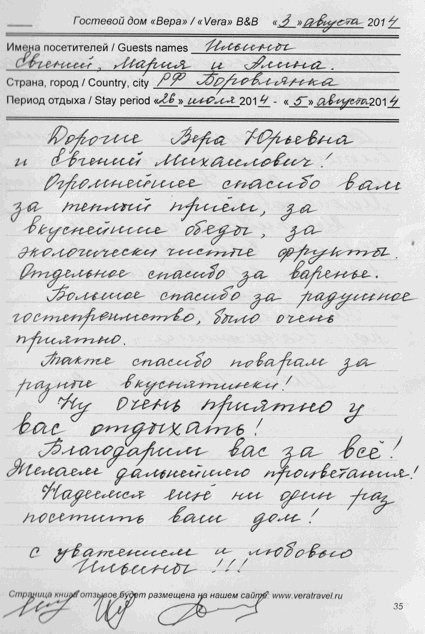 Гостевой дом «Вера» / «Vera» B&B «3» августа 2014
Имена посетителей / Guests names Ильины
Евгений, Мария и Элина.
Страна, город / Country, city РФ Боровлянка
Период отдыха / Stay period «26» июля 2014 - «5» августа 2014
Дорогие Вера Юрьевна
и Евгений Михайлович!
Огромнейшее спасибо вам
за теплый приём, за
вкуснейшие обеды, за
экологически чистые фрукты.
Отдельное спасибо за варенье.
Большое спасибо за радушное
гостеприимство, было очень
приятно.
Также спасибо поварам за
разные вкуснятинки!
Ну очень приятно у
вас отдыхать!
Благодарим вас за всё!
Желаем дальнейшего процветания!
Надеемся ещё ни один раз
посетить ваш дом!
с уважением и любовью
Ильины !!!
Страница книги отзывов будет размещена на нашем сайте: www.veratravel.ru
35